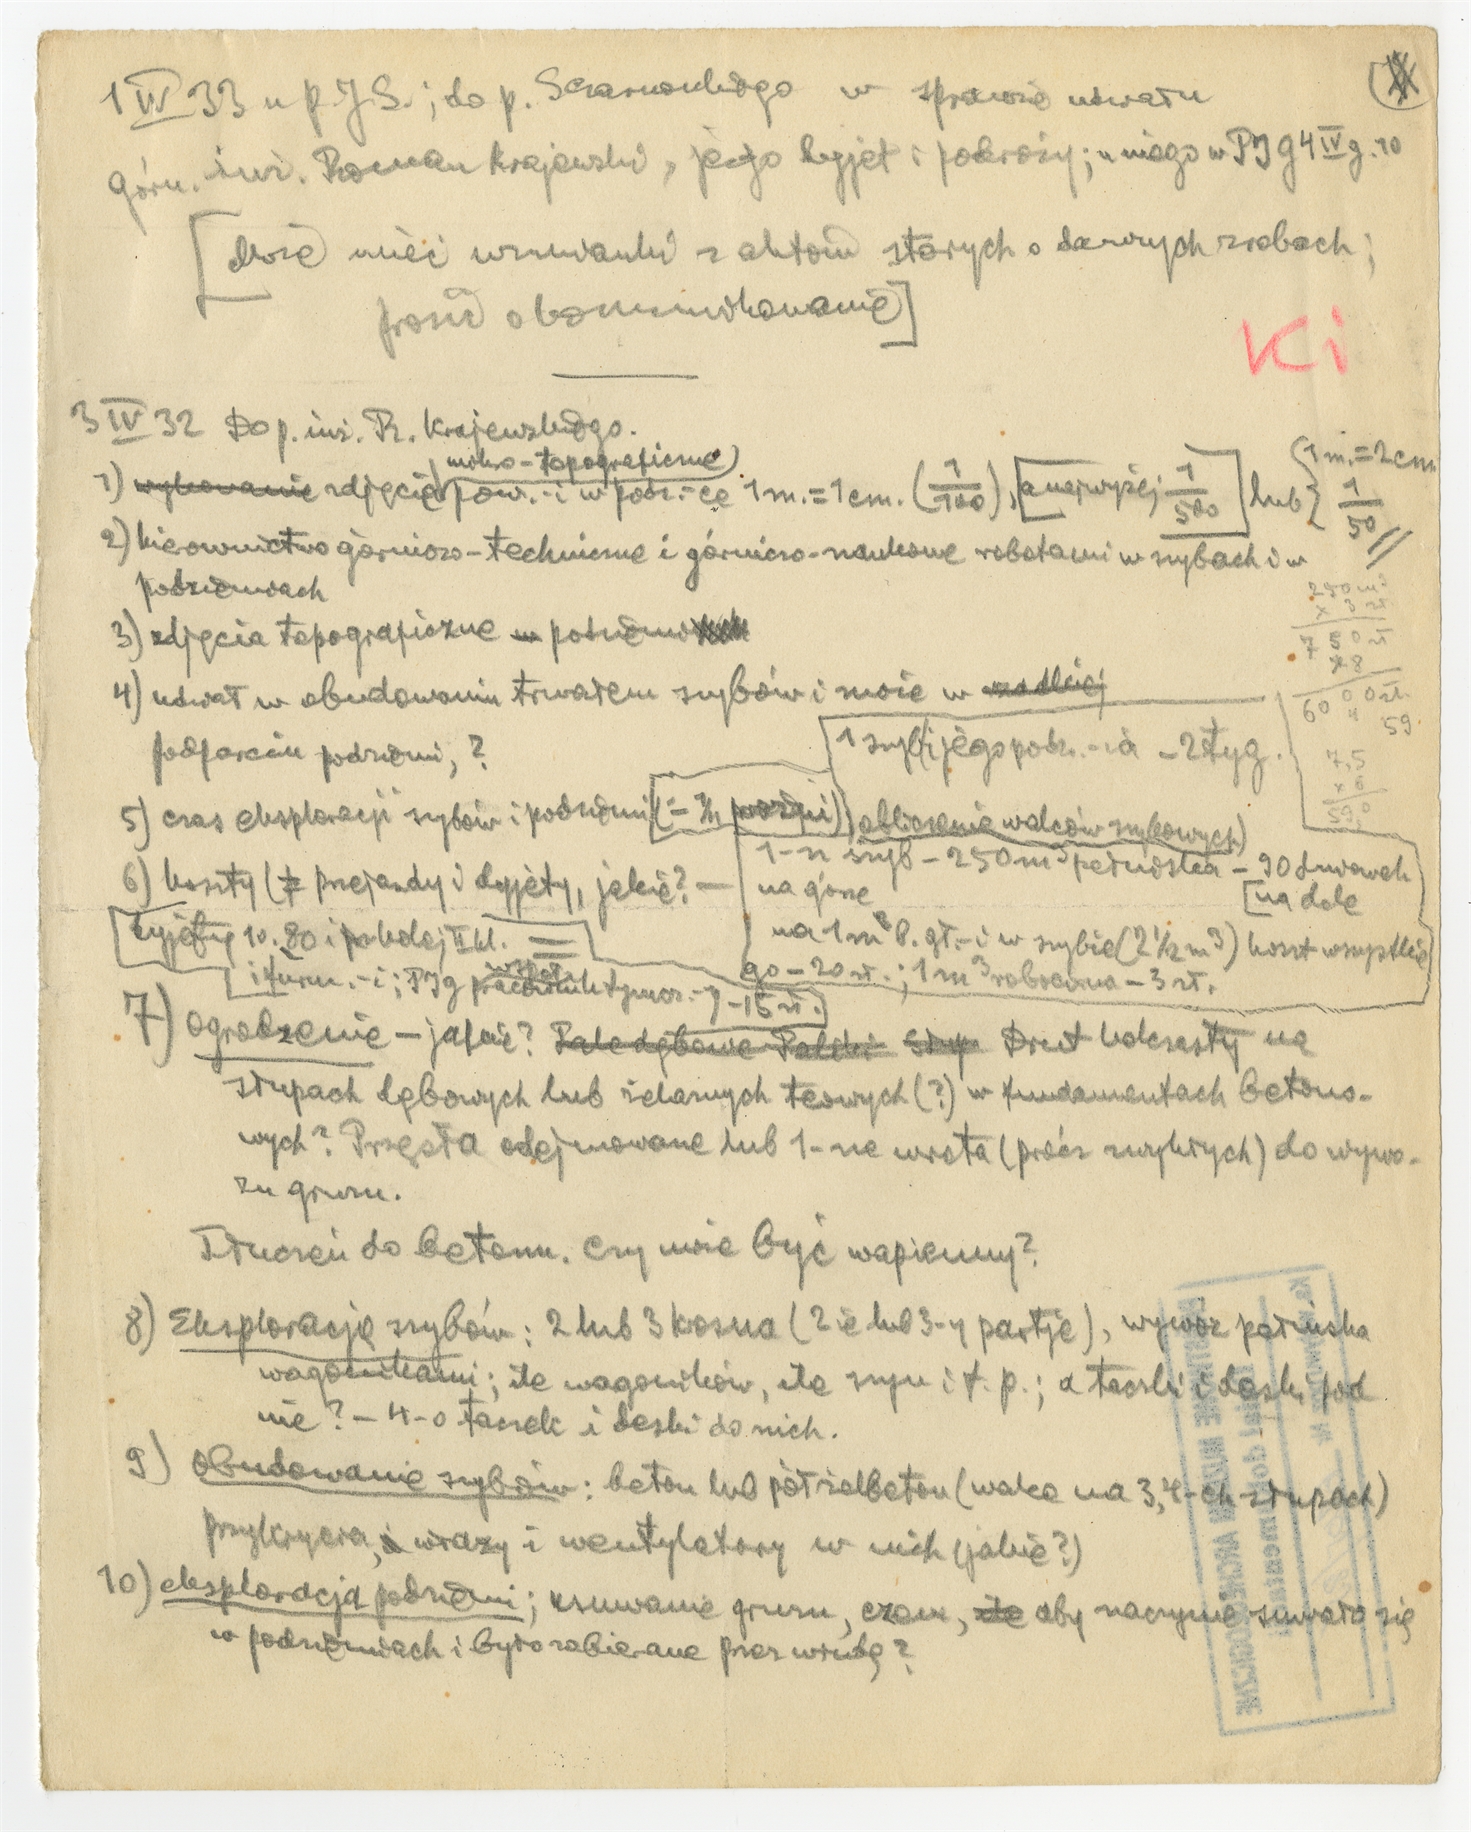 1 IV 33 u p. J. S.; do p. Czarnockiego w sprawie udziału
górn. inż. Roman Krajewski, jego dyjet i podróży; u niego w PIG 4 IV g. 10
[dwie wzmianki z aktów starych o dawnych robach;
proszę o zakomunikowanie]
Ki
3 IV 32 Do p. inż. R. Krajewskiego.
mikro-topograficzne)
1) wykonanie zdjęcie pow.-i w podz.-ce 1 m. = 1 cm. (1/100), [a najwyżej 1/500] lub { (1 m. = 2 cm. 1/50
2) kierownictwo górniczo-techniczne i górniczo-naukowe robotami w szybach i w
podziemiach
3) zdjęcia topograficzne w podziemi
4) udział w obudowaniu trwałem szybów i może w
podparciu podziemi, ?
250 m3
x 3 zł.
750 zł
x 8
6000 zł.
59
7,5
x 8
1 szyb i jego podz.-ia - 2 tyg.
5) czas eksploracji szybów i podziemi (= ), obliczenie walców szybowych)
6) koszty (przejazdy i dyjety, jakie? —
1-n szyb - 250 m3 - 90
na górze [na dole
na 1 m3 8. gł.-i w szybie (2 1/2 m3) koszt wszystkie
go - 20 zł.; 1 m3 - 3 zł.
dyjety 10.80 i kolej II kl.
i furm.-i; PIG współ
pracownik tymcz. - 7-15 zł.
7) ogrodzenie — jakie? Pale dębowe Drut kolczasty na
słupach dębowych lub żelaznych teowych (?) w fundamentach betono-
wych? Przęsła odejmowane lub 1-ne wrota (prócz zwykłych) do wywo-
zu gruzu.
Tłuczeń do betonu. Czy może być wapienny?
8) Eksploracja szybów: 2 lub 3 naraz (2 ie lub 3-y partje), wywóz
wagonikami; ile wagoników, ile szyn i t. p.; a taczki i deski pod
nie? - 4-o taczek i deski do nich.
9) Obudowanie szybów: beton lub półżelbeton (walce na 3, 4-ch słupach)
przykrycia, włazy i wentylatory w nich (jakie?)
10) eksploracja podziemi; usuwanie gruzu, czem, aby naczynie suwało się
w podziemiach i było zabierane przez windę?
PAŃSTWOWE MUZEUM ARCHEOLOGICZNE
Dział dokumentacji